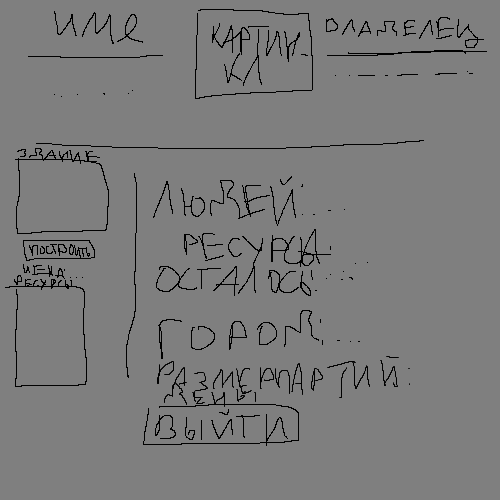 имя
КАРТИН-
КА
ВЛАДЕЛЕЦ
ЗДАНИЕ
ПОСТРОИТЬ
ЦЕНА:...
РЕСУРСЫ
ЛЮДЕЙ:....
РЕСУРСЫ
ОСТАЛОСЬ:....
ГОРОД:...
РАЗМЕР ПАРТИЙ:
ВЫЙТИ